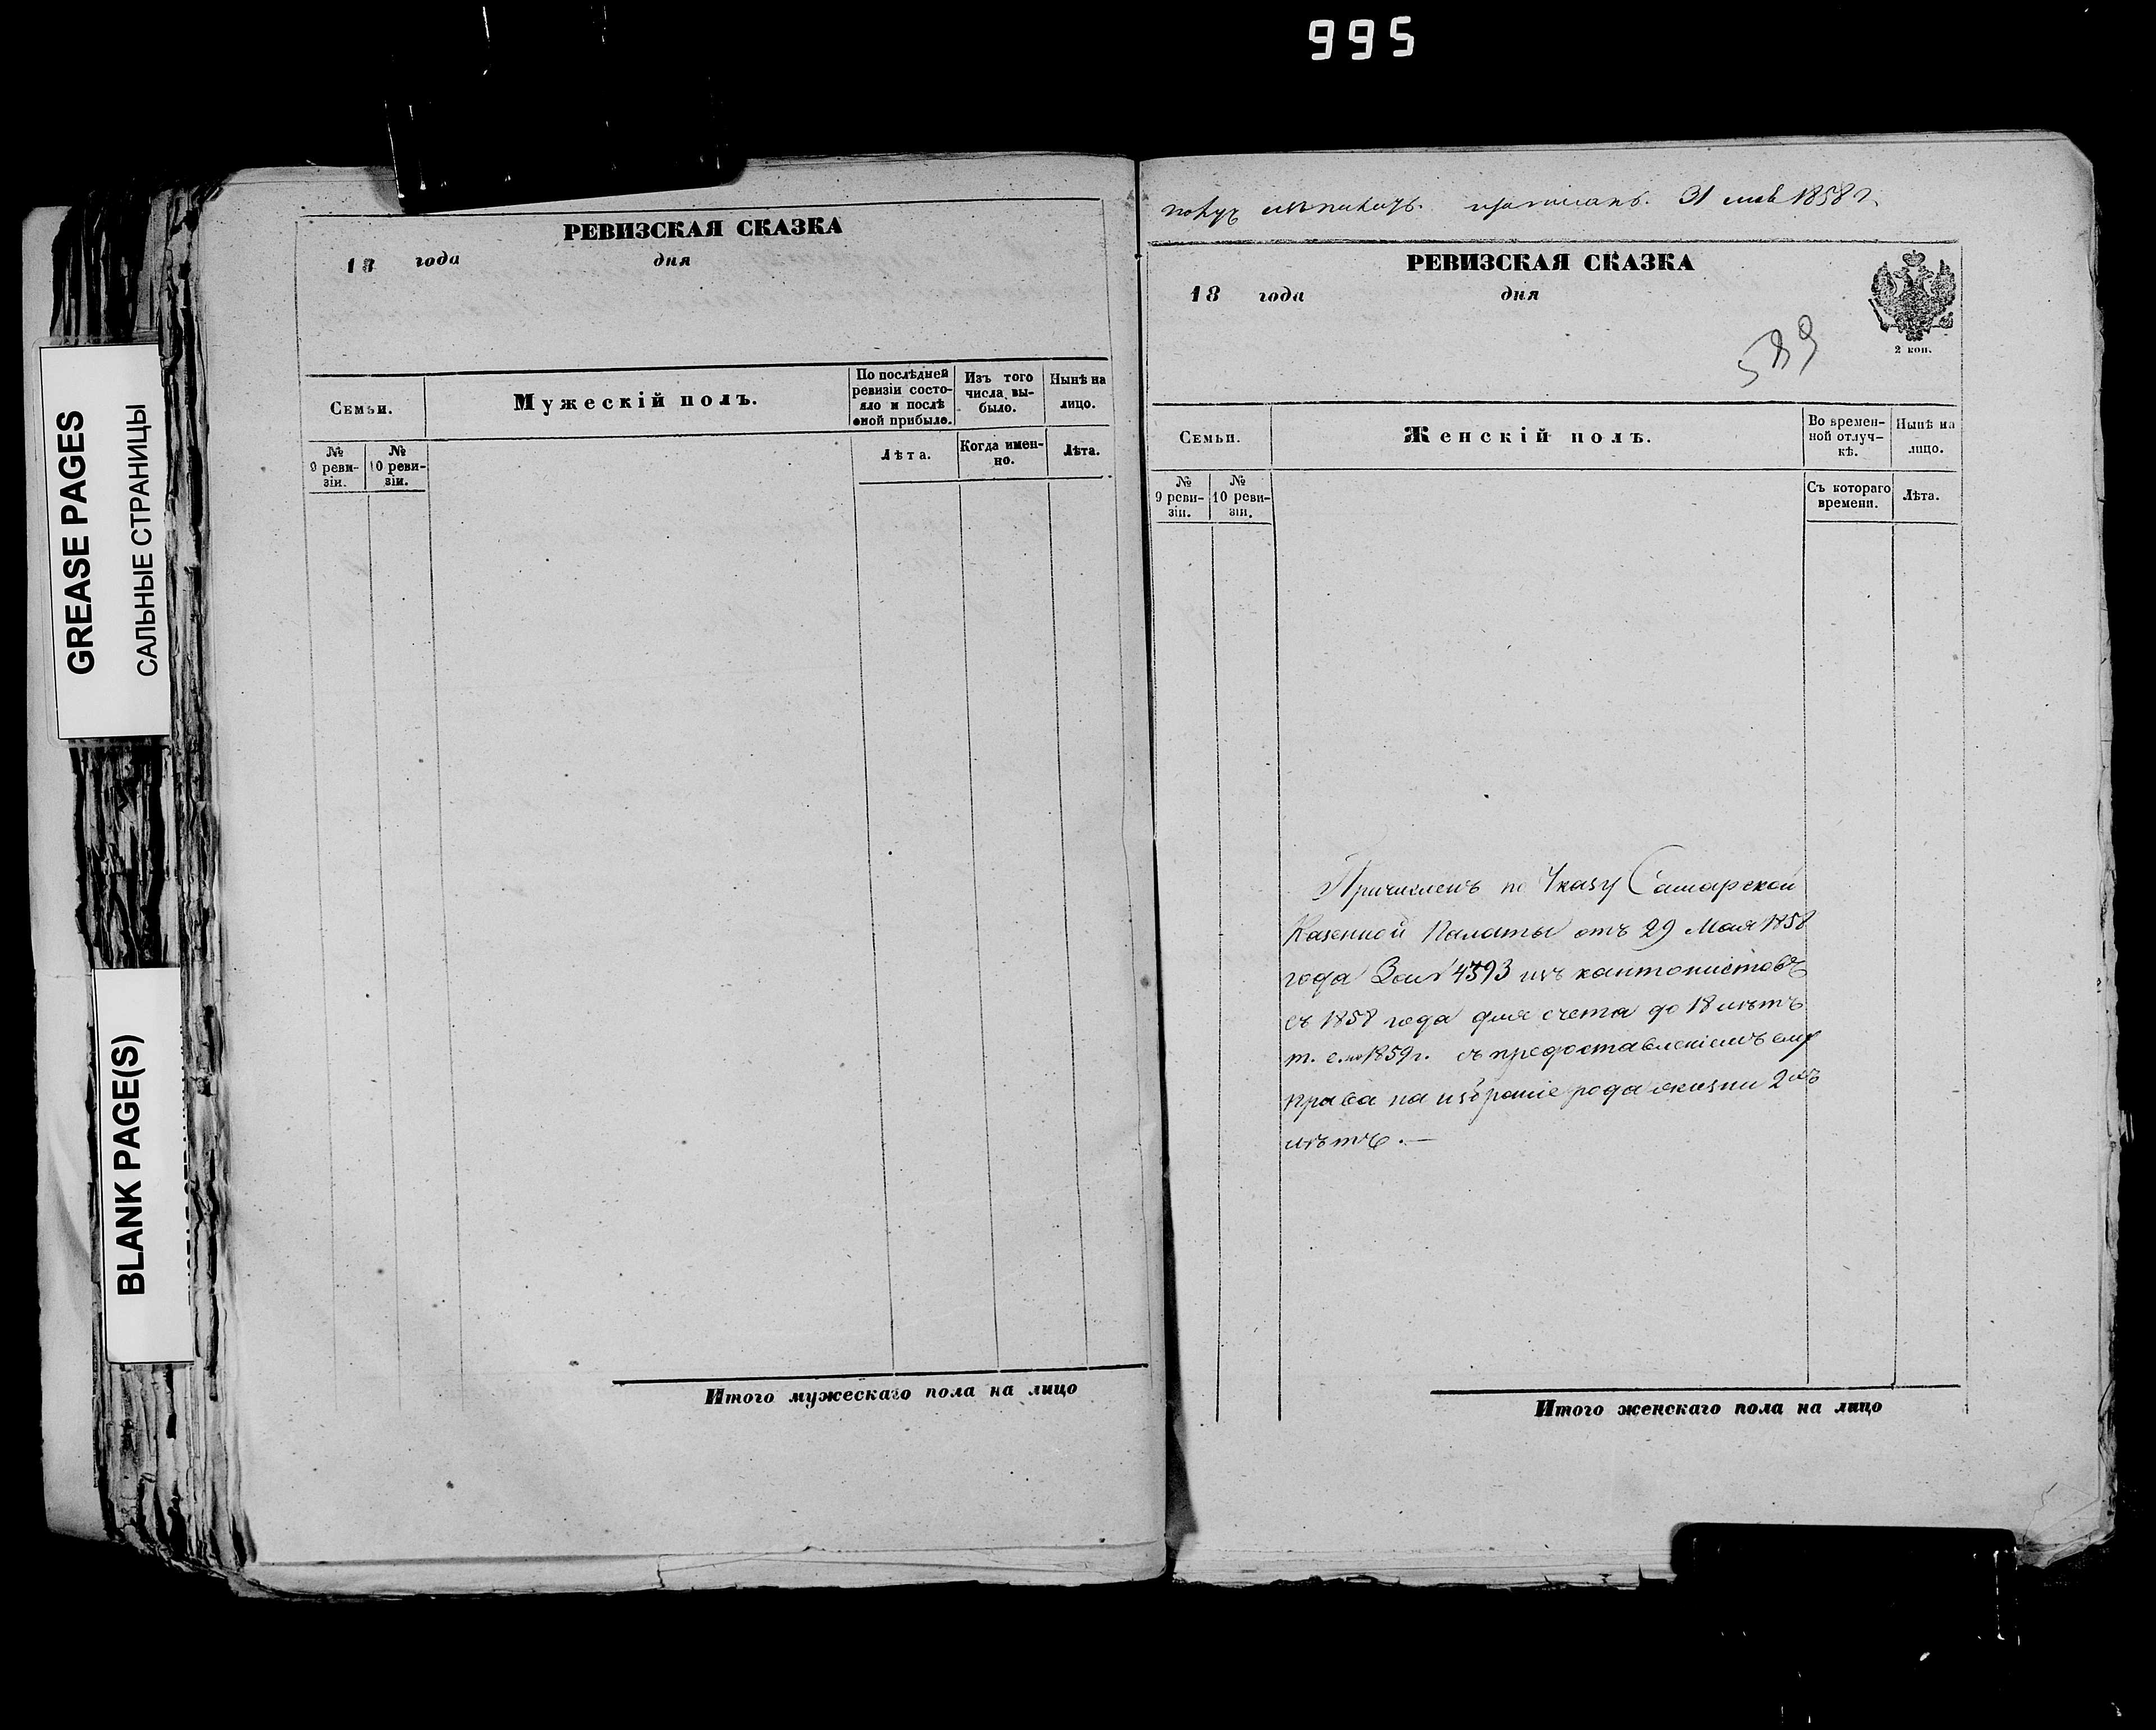 995
GREASE PAGES
САЛЬНЫЕ СТРАНИЦЫ
BLANK PAGE(S)
РЕВИЗСКАЯ СКАЗКА
18 года дня
Семьи.
Мужескій полъ.
По послѣдней ревизіи состояло и послѣ оной прибыло.
Изъ того числа вы-было.
Нынѣ на лицо.
№ 9 реви-зіи.
№ 10 реви-зіи.
Лѣта.
Когда имен-но.
Лѣта.
Итого мужескаго пола на лицо
31 1858 г.
РЕВИЗСКАЯ СКАЗКА
18 года дня
2 коп.
589
Семьи.
Женскій полъ.
Во времен-ной отлуч-кѣ.
Нынѣ на лицо.
№ 9 реви-зіи.
№ 10 реви-зіи.
Съ котораго времени.
Лѣта.
Причисленъ по Указу Самарской
Казенной Палаты отъ 29 Мая 1858
года За № 4393 изъ кантонистовъ
съ 1858 года для счета до 18 лѣтъ
т. е. по 1859 г. съ предоставленіемъ ему
права на избраніе рода жизни 2хъ
лѣтъ. —
Итого женскаго пола на лицо